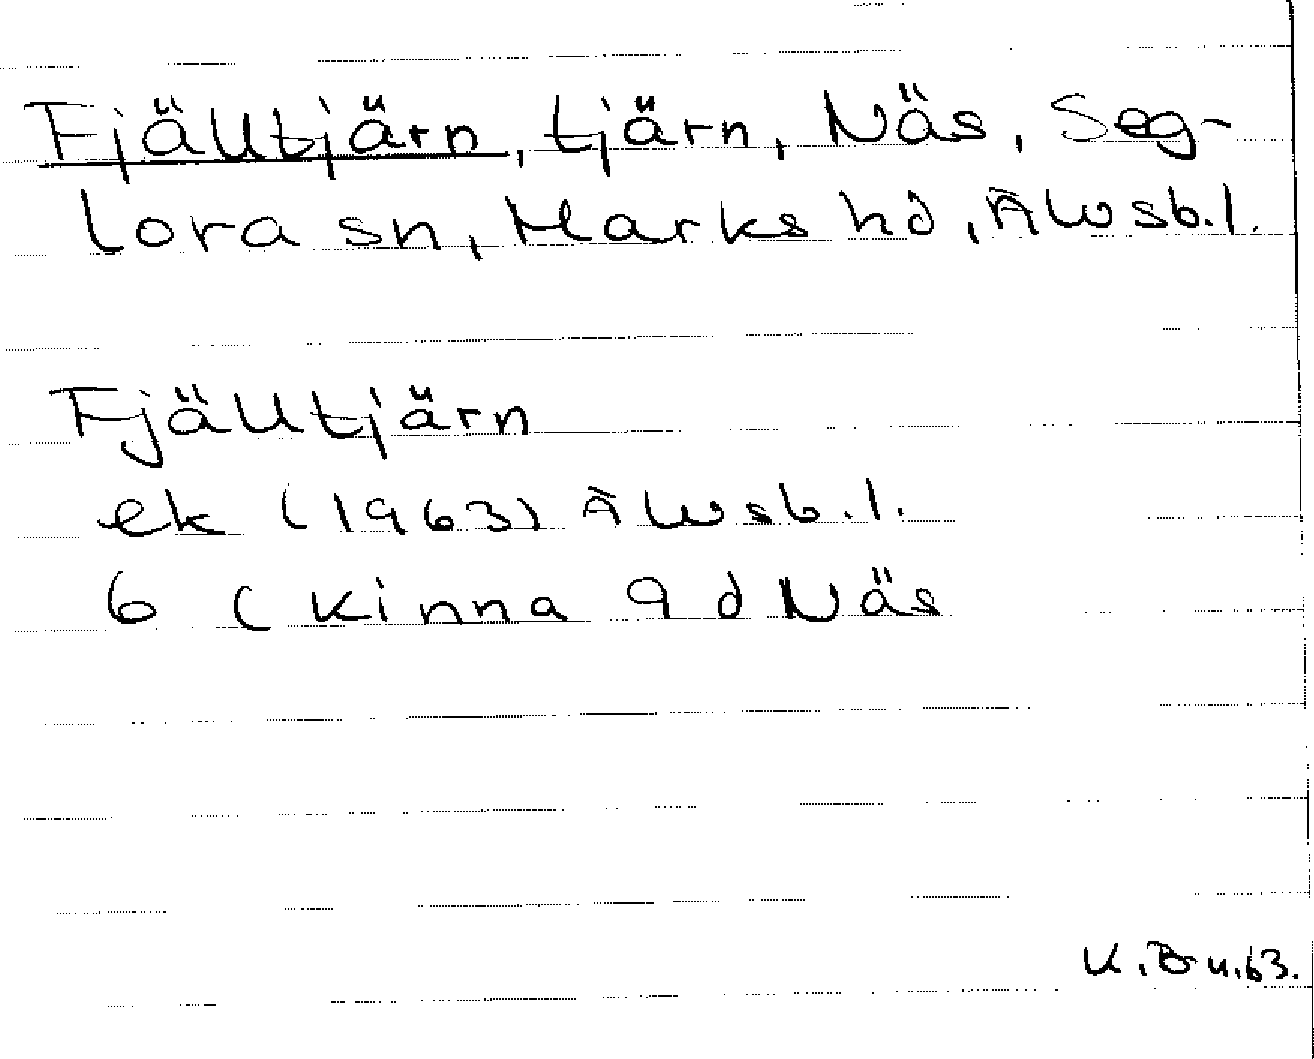 Fjälltjärn, tjärn, Näs, Seg-
lora sn, Marks hd, Älvsb.l.
Fjälltjärn
ek (1963) Älvsb.l.
6 (Kinna 9d Näs
K.Bn.63.